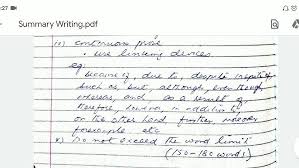 :27
Summary Writing.pdf
iv) continuous prose
• use linking devices
eg:
because of, due to, despite, inspite of
such as, but, although, even though,
whereas, and, as a result of
therefore, hence, in addition to
on the other hand, further, moreover
for example, etc
x) Do not exceed the word limit
(150-180 words)